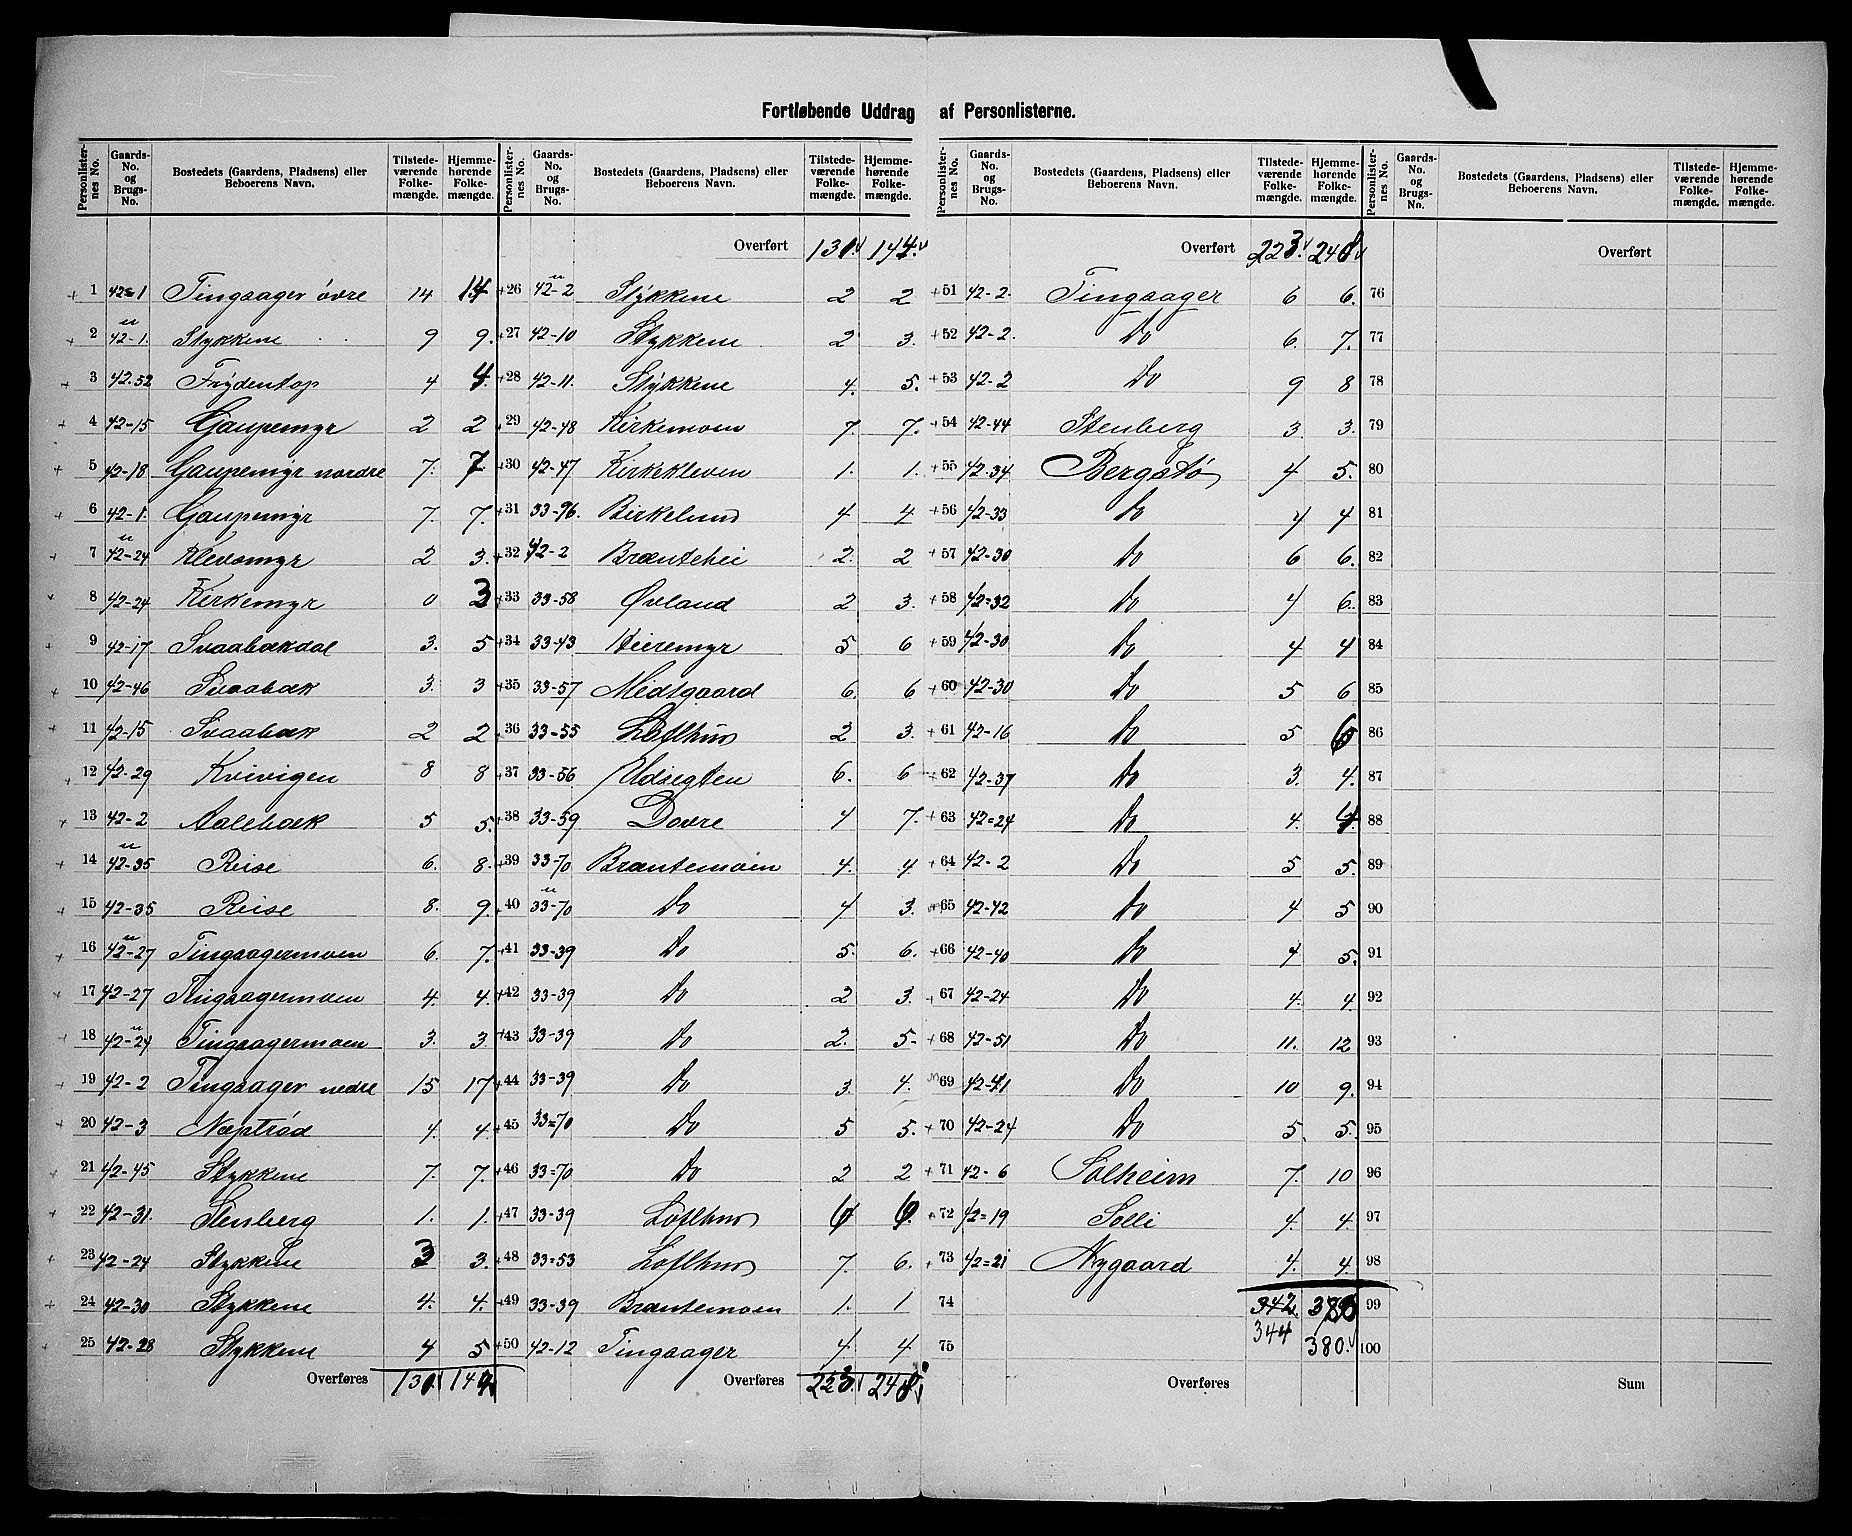 Fortløbende Uddrag af Personlisterne.
Personlister-nes No. | Gaards-No. og Brugs-No. | Bostedets (Gaardens, Pladsens) eller Beboerens Navn. | Tilstede-værende Folke-mængde. | Hjemme-hørende Folke-mængde.
1 42-1 Tingsager övre 14 14
2 42-1. Stykkene 9 9.
3 42.52 Frydentop 4 4.
4 42-15 Gaupemyr 2 2
5 42-18 Gaupemyr nordre 7. 7
6 42-1. Gaupemyr 7. 7.
7 42-24 Klevemyr 2 3.
8 42-24 Kirkemyr 0 3
9 42-17 Svaabækdal 3. 5
10 42-46 Svaabæk 3. 3
11 42-15 Svaabæk 2 2
12 42-29 Kvivigen 8 8
13 42-2 Aalebæk 5 5.
14 42-35 Reise 6. 8.
15 42-35 Reise 8. 9.
16 42-27 Tingsagermoen 6. 7.
17 42-27 Tingsagermoen 4. 4.
18 42-24 Tingsagermoen 3. 3
19 42-2 Tingsager nedre 15 17
20 42-3 Næptröd 4. 4.
21 42-45 Stykkene 7. 7.
22 42-31. Stenberg 1. 1.
23 42-24 Stykkene 3 3.
24 42-30 Stykkene 4. 4.
25 42-28 Stykkene 4 5
Overføres 130. 144
Personlister-nes No. | Gaards-No. og Brugs-No. | Bostedets (Gaardens, Pladsens) eller Beboerens Navn. | Tilstede-værende Folke-mængde. | Hjemme-hørende Folke-mængde.
Overført 130. 144.
26 42-2 Stykkene 2 2
27 42-10 Stykkene 2 3.
28 42-11. Stykkene 4. 5.
29 42-48 Kirkemoen 7. 7.
30 42-47 Kirkekleven 1. 1.
31 33-96. Birkelund 4 4
32 42-2 Bræntehei 2. 2
33 33-58 Øvland 2 3.
34 33-43 Heiremyr 5 6
35 33-57 Midtgaard 6. 6
36 33-55 Lofthus 2 3.
37 33-56 Udsigten 6. 6
38 33-59 Dovre 4 7.
39 33-70 Bræntemoen 4. 4
40 33-70 Do 4 3.
41 33-39 Do 5. 6.
42 33-39 Do 2 3.
43 33-39 Do 2. 5.
44 33-39 Do 3. 4.
45 33=70 Do 5 5.
46 33=70 Do 2 2
47 33-39 Lofthus 6 6.
48 33=53 Lofthus 7. 6.
49 33-39 Bræntemoen 1. 1
50 42-12 Tingsager 4. 4
Overføres 223. 248
Personlister-nes No. | Gaards-No. og Brugs-No. | Bostedets (Gaardens, Pladsens) eller Beboerens Navn. | Tilstede-værende Folke-mængde. | Hjemme-hørende Folke-mængde.
Overført 223. 248
51 42-2. Tingsager 6 6.
52 42-2. Do 6. 7.
53 42-2 Do 9 8
54 42-44 Stenberg 3. 3.
55 42-34 Bergstö 4 5.
56 42-33 Do 4 4
57 42-30 Do 6 6.
58 42=32 Do 4 6.
59 42-30 Do 4 4
60 42-30 Do 5 6
61 42-16 Do 5 6
62 42-37 Do 3. 4.
63 42=24 Do 4. 4.
64 42-2 Do 5 5.
65 42-42 Do 4 5
66 42-40 Do 4 5.
67 42-24 Do 4. 4.
68 42-51 Do 11. 12
69 42-41 Do 10 9.
70 42-24 Do 5 5.
71 42-6 Solheim 7. 10
72 42=19 Solli 4. 4.
73 42=21 Nygaard 4. 4.
74 342. 380
75 344 380.
Overføres
Personlister-nes No. | Gaards-No. og Brugs-No. | Bostedets (Gaardens, Pladsens) eller Beboerens Navn. | Tilstede-værende Folke-mængde. | Hjemme-hørende Folke-mængde.
Overført
76
77
78
79
80
81
82
83
84
85
86
87
88
89
90
91
92
93
94
95
96
97
98
99
100
Sum